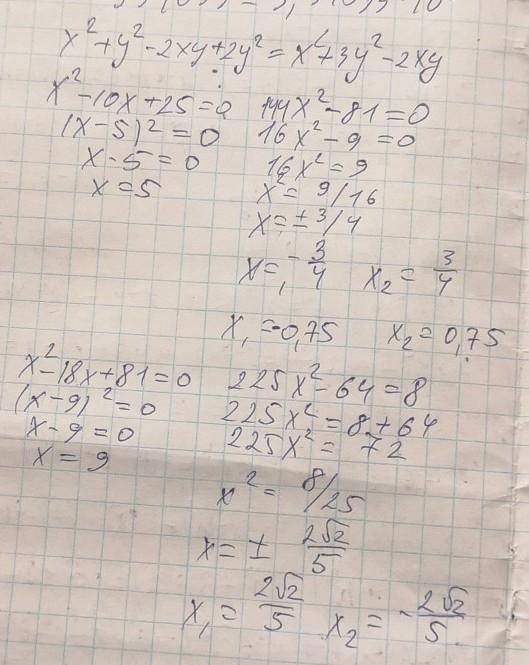 x² + y² - 2xy + 2y² = x² + 3y² - 2xy
x² - 10x + 25 = 0
(x - 5)² = 0
x - 5 = 0
x = 5
144x² - 81 = 0
16x² - 9 = 0
16x² = 9
x² = 9/16
x = ± 3/4
x₁ = -3/4 x₂ = 3/4
x₁ = -0,75 x₂ = 0,75
x² - 18x + 81 = 0
(x - 9)² = 0
x - 9 = 0
x = 9
225x² - 64 = 8
225x² = 8 + 64
225x² = 72
x² = 8/25
x = ± 2√2/5
x₁ = 2√2/5 x₂ = -2√2/5